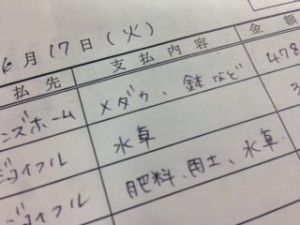 6月17日(火)
払先 支払内容 金額
ンズホーム メダカ、鉢など 478
ジョイフル 水草 3
ジョイフル 肥料、用土、水草